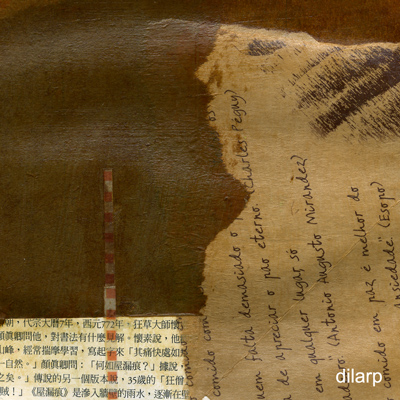 朝，代宗大曆7年，西元772年，狂草大師懷
顏真卿問他，對書法有什麼見解，懷素說，他
山峰，經常揣摩學習，寫起字來「其痛快處如
一自然。」顏真卿問：「何如屋漏痕？」據說，
之矣。」傳說的另一個版本說，35歲的「狂僧
賊！」《屋漏痕》是滲入牆壁的雨水，逐漸在壁
os
(Charles Péguy)
comido com
comido com
uem falta demasiado o
a de apreciar o pão eterno.
em qualquer lugar, só
" (Antonio Augusto Mirandez)
ado o
comido em paz é melhor do
ansiedade" (Esopo)
dilarp